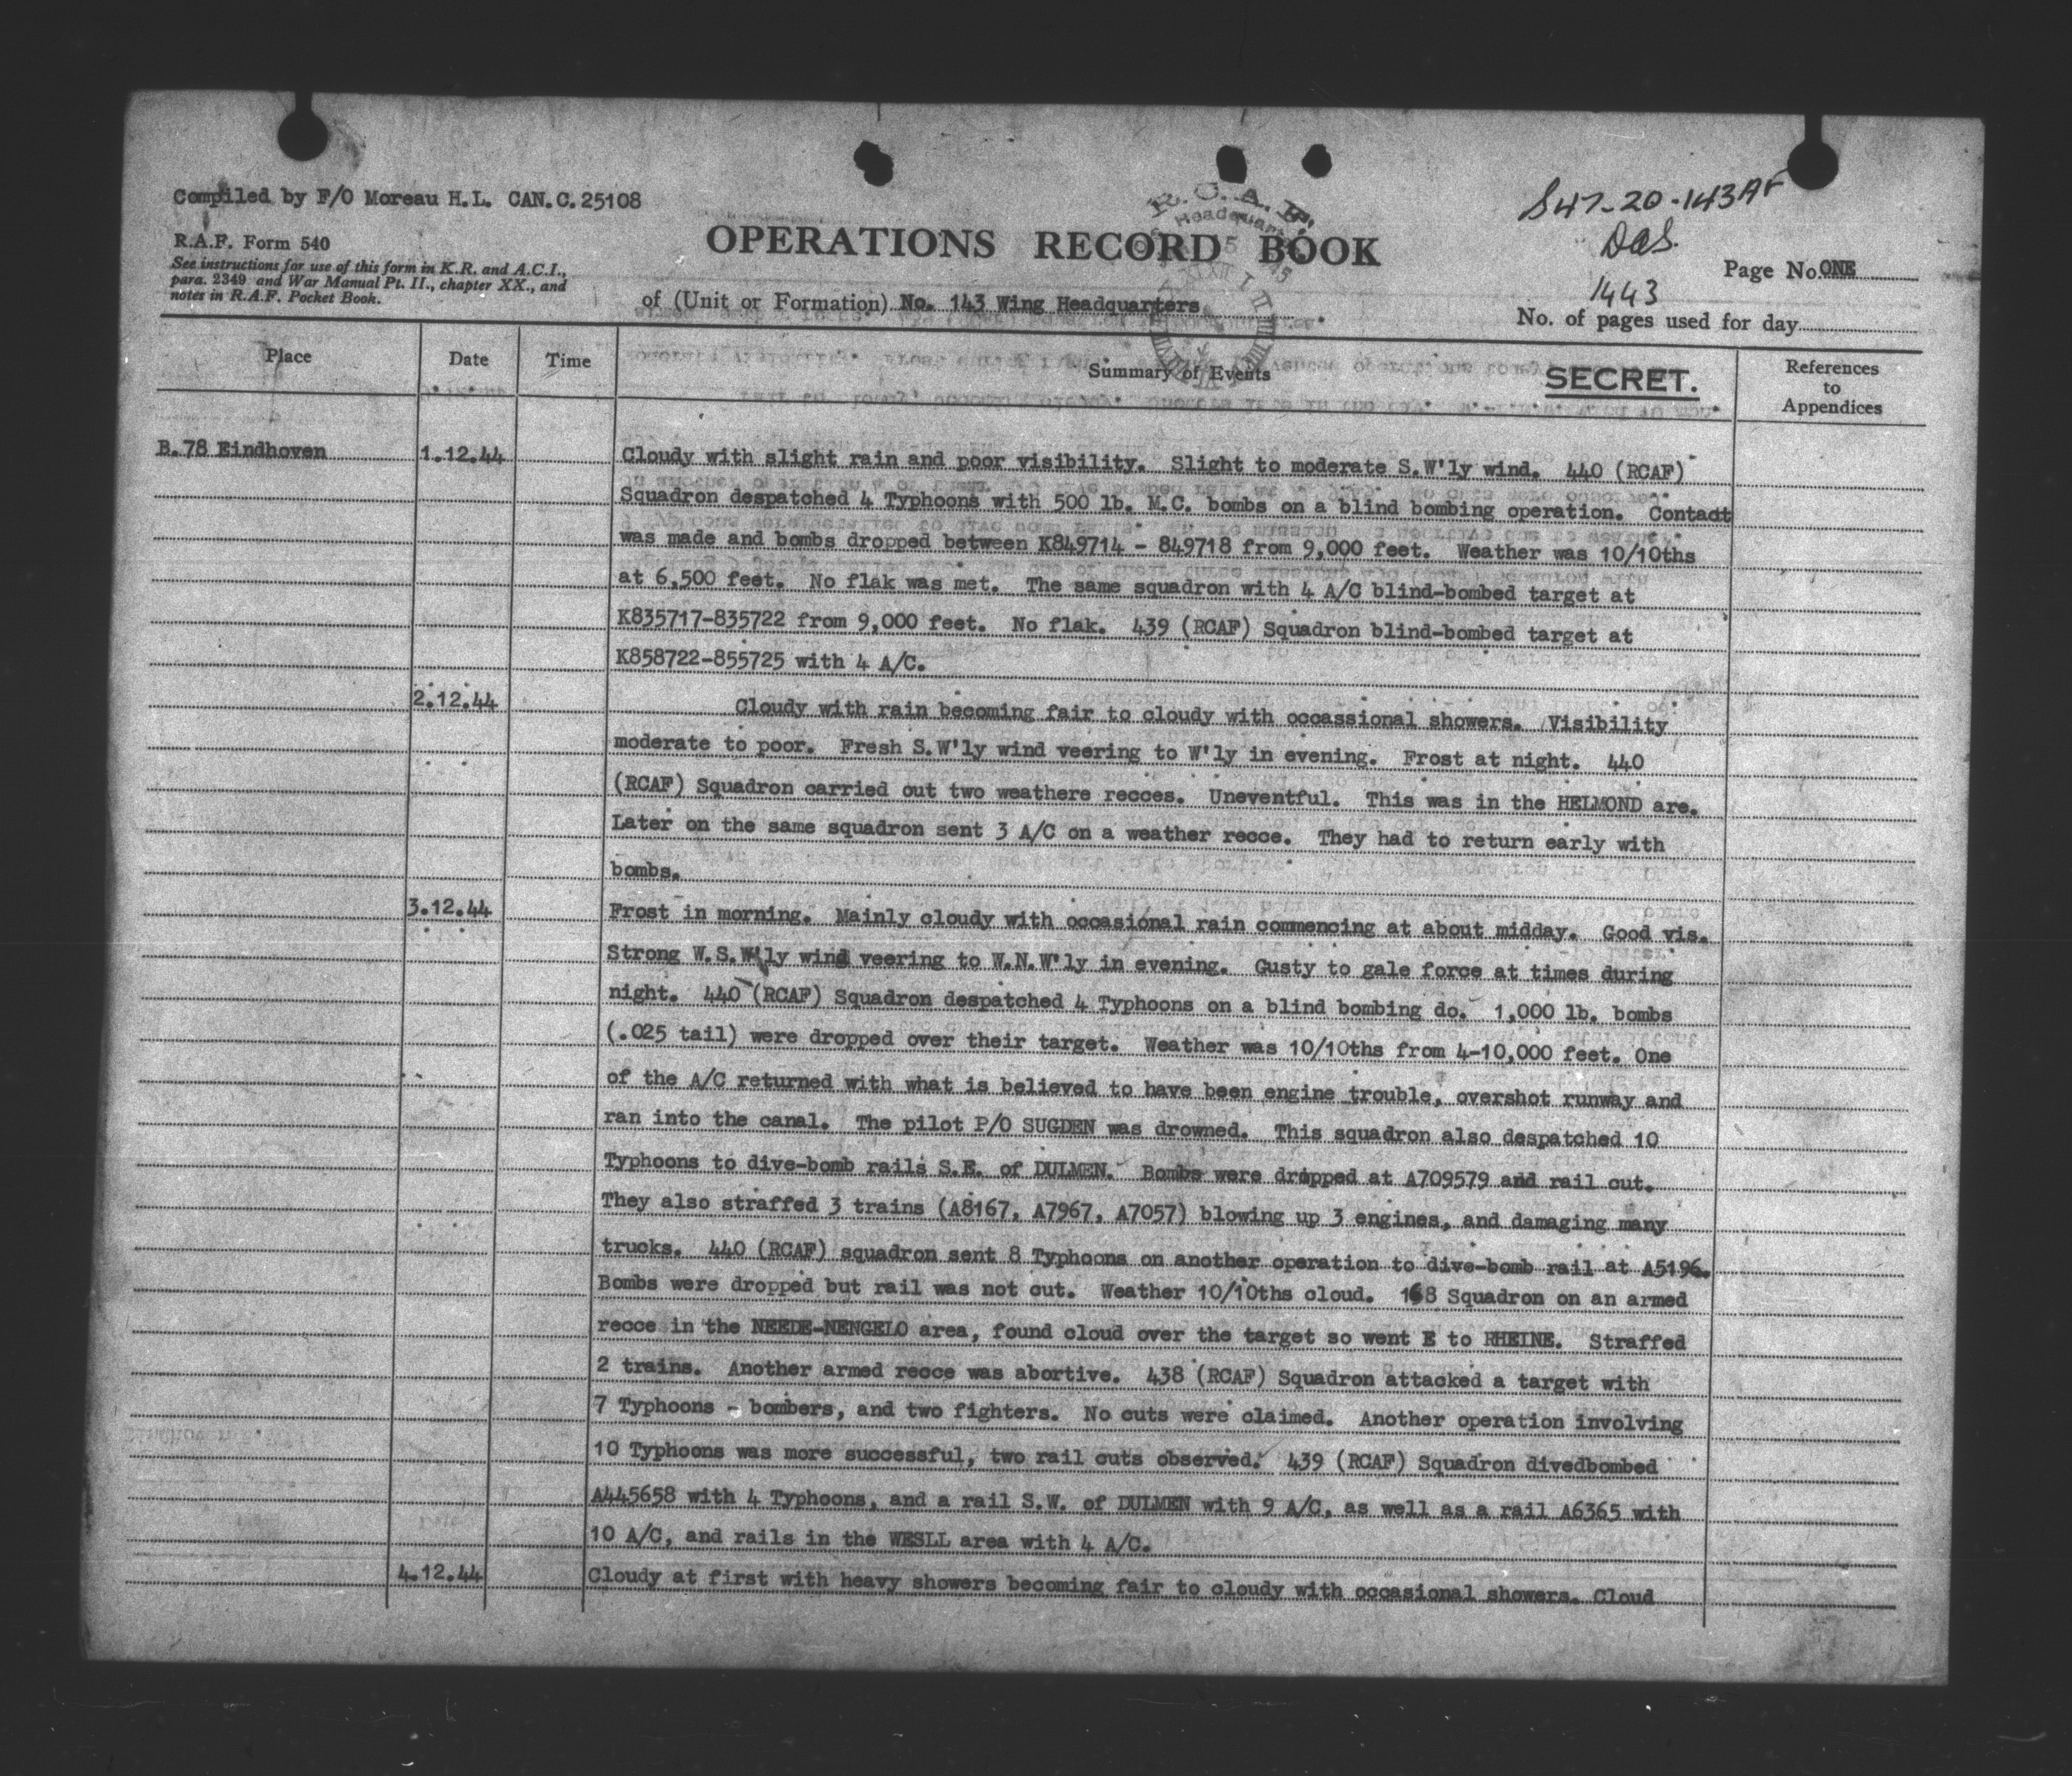 Compiled by F/O Moreau H.L. CAN.C.25108
R.A.F. Form 540
See instructions for use of this form in K.R. and A.C.I.,
para. 2349 and War Manual Pt. II., chapter XX., and
notes in R.A.F. Pocket Book.
OPERATIONS RECORD BOOK
R.C.A.F.
Headquarters
S47-20-143AF
DAS.
1443
Page No. ONE
of (Unit or Formation) No. 143 Wing Headquarters
No. of pages used for day
Place Date Time Summary of Events SECRET. References
to
Appendices
B.78 Eindhoven 1.12.44 Cloudy with slight rain and poor visibility. Slight to moderate S.W'ly wind. 440 (RCAF)
Squadron despatched 4 Typhoons with 500 lb. M.C. bombs on a blind bombing operation. Contact
was made and bombs dropped between K849714 - 849718 from 9,000 feet. Weather was 10/10ths
at 6,500 feet. No flak was met. The same squadron with 4 A/C blind-bombed target at
K835717-835722 from 9,000 feet. No flak. 439 (RCAF) Squadron blind-bombed target at
K858722-855725 with 4 A/C.
2.12.44 Cloudy with rain becoming fair to cloudy with occassional showers. Visibility
moderate to poor. Fresh S.W'ly wind veering to W'ly in evening. Frost at night. 440
(RCAF) Squadron carried out two weathere recces. Uneventful. This was in the HELMOND are.
Later on the same squadron sent 3 A/C on a weather recce. They had to return early with
bombs.
3.12.44 Frost in morning. Mainly cloudy with occasional rain commencing at about midday. Good vis.
Strong W.S.W'ly wind veering to W.N.W'ly in evening. Gusty to gale force at times during
night. 440 (RCAF) Squadron despatched 4 Typhoons on a blind bombing do. 1,000 lb. bombs
(.025 tail) were dropped over their target. Weather was 10/10ths from 4-10,000 feet. One
of the A/C returned with what is believed to have been engine trouble, overshot runway and
ran into the canal. The pilot P/O SUGDEN was drowned. This squadron also despatched 10
Typhoons to dive-bomb rails S.E. of DULMEN. Bombs were dropped at A709579 and rail cut.
They also straffed 3 trains (A8167, A7967, A7057) blowing up 3 engines, and damaging many
trucks. 440 (RCAF) squadron sent 8 Typhoons on another operation to dive-bomb rail at A5196.
Bombs were dropped but rail was not cut. Weather 10/10ths cloud. 168 Squadron on an armed
recce in the NEEDE-NENGELO area, found cloud over the target so went E to RHEINE. Straffed
2 trains. Another armed recce was abortive. 438 (RCAF) Squadron attacked a target with
7 Typhoons - bombers, and two fighters. No cuts were claimed. Another operation involving
10 Typhoons was more successful, two rail cuts observed. 439 (RCAF) Squadron divedbombed
A445658 with 4 Typhoons, and a rail S.W. of DULMEN with 9 A/C, as well as a rail A6365 with
10 A/C, and rails in the WESLL area with 4 A/C.
4.12.44 Cloudy at first with heavy showers becoming fair to cloudy with occasional showers. Cloud